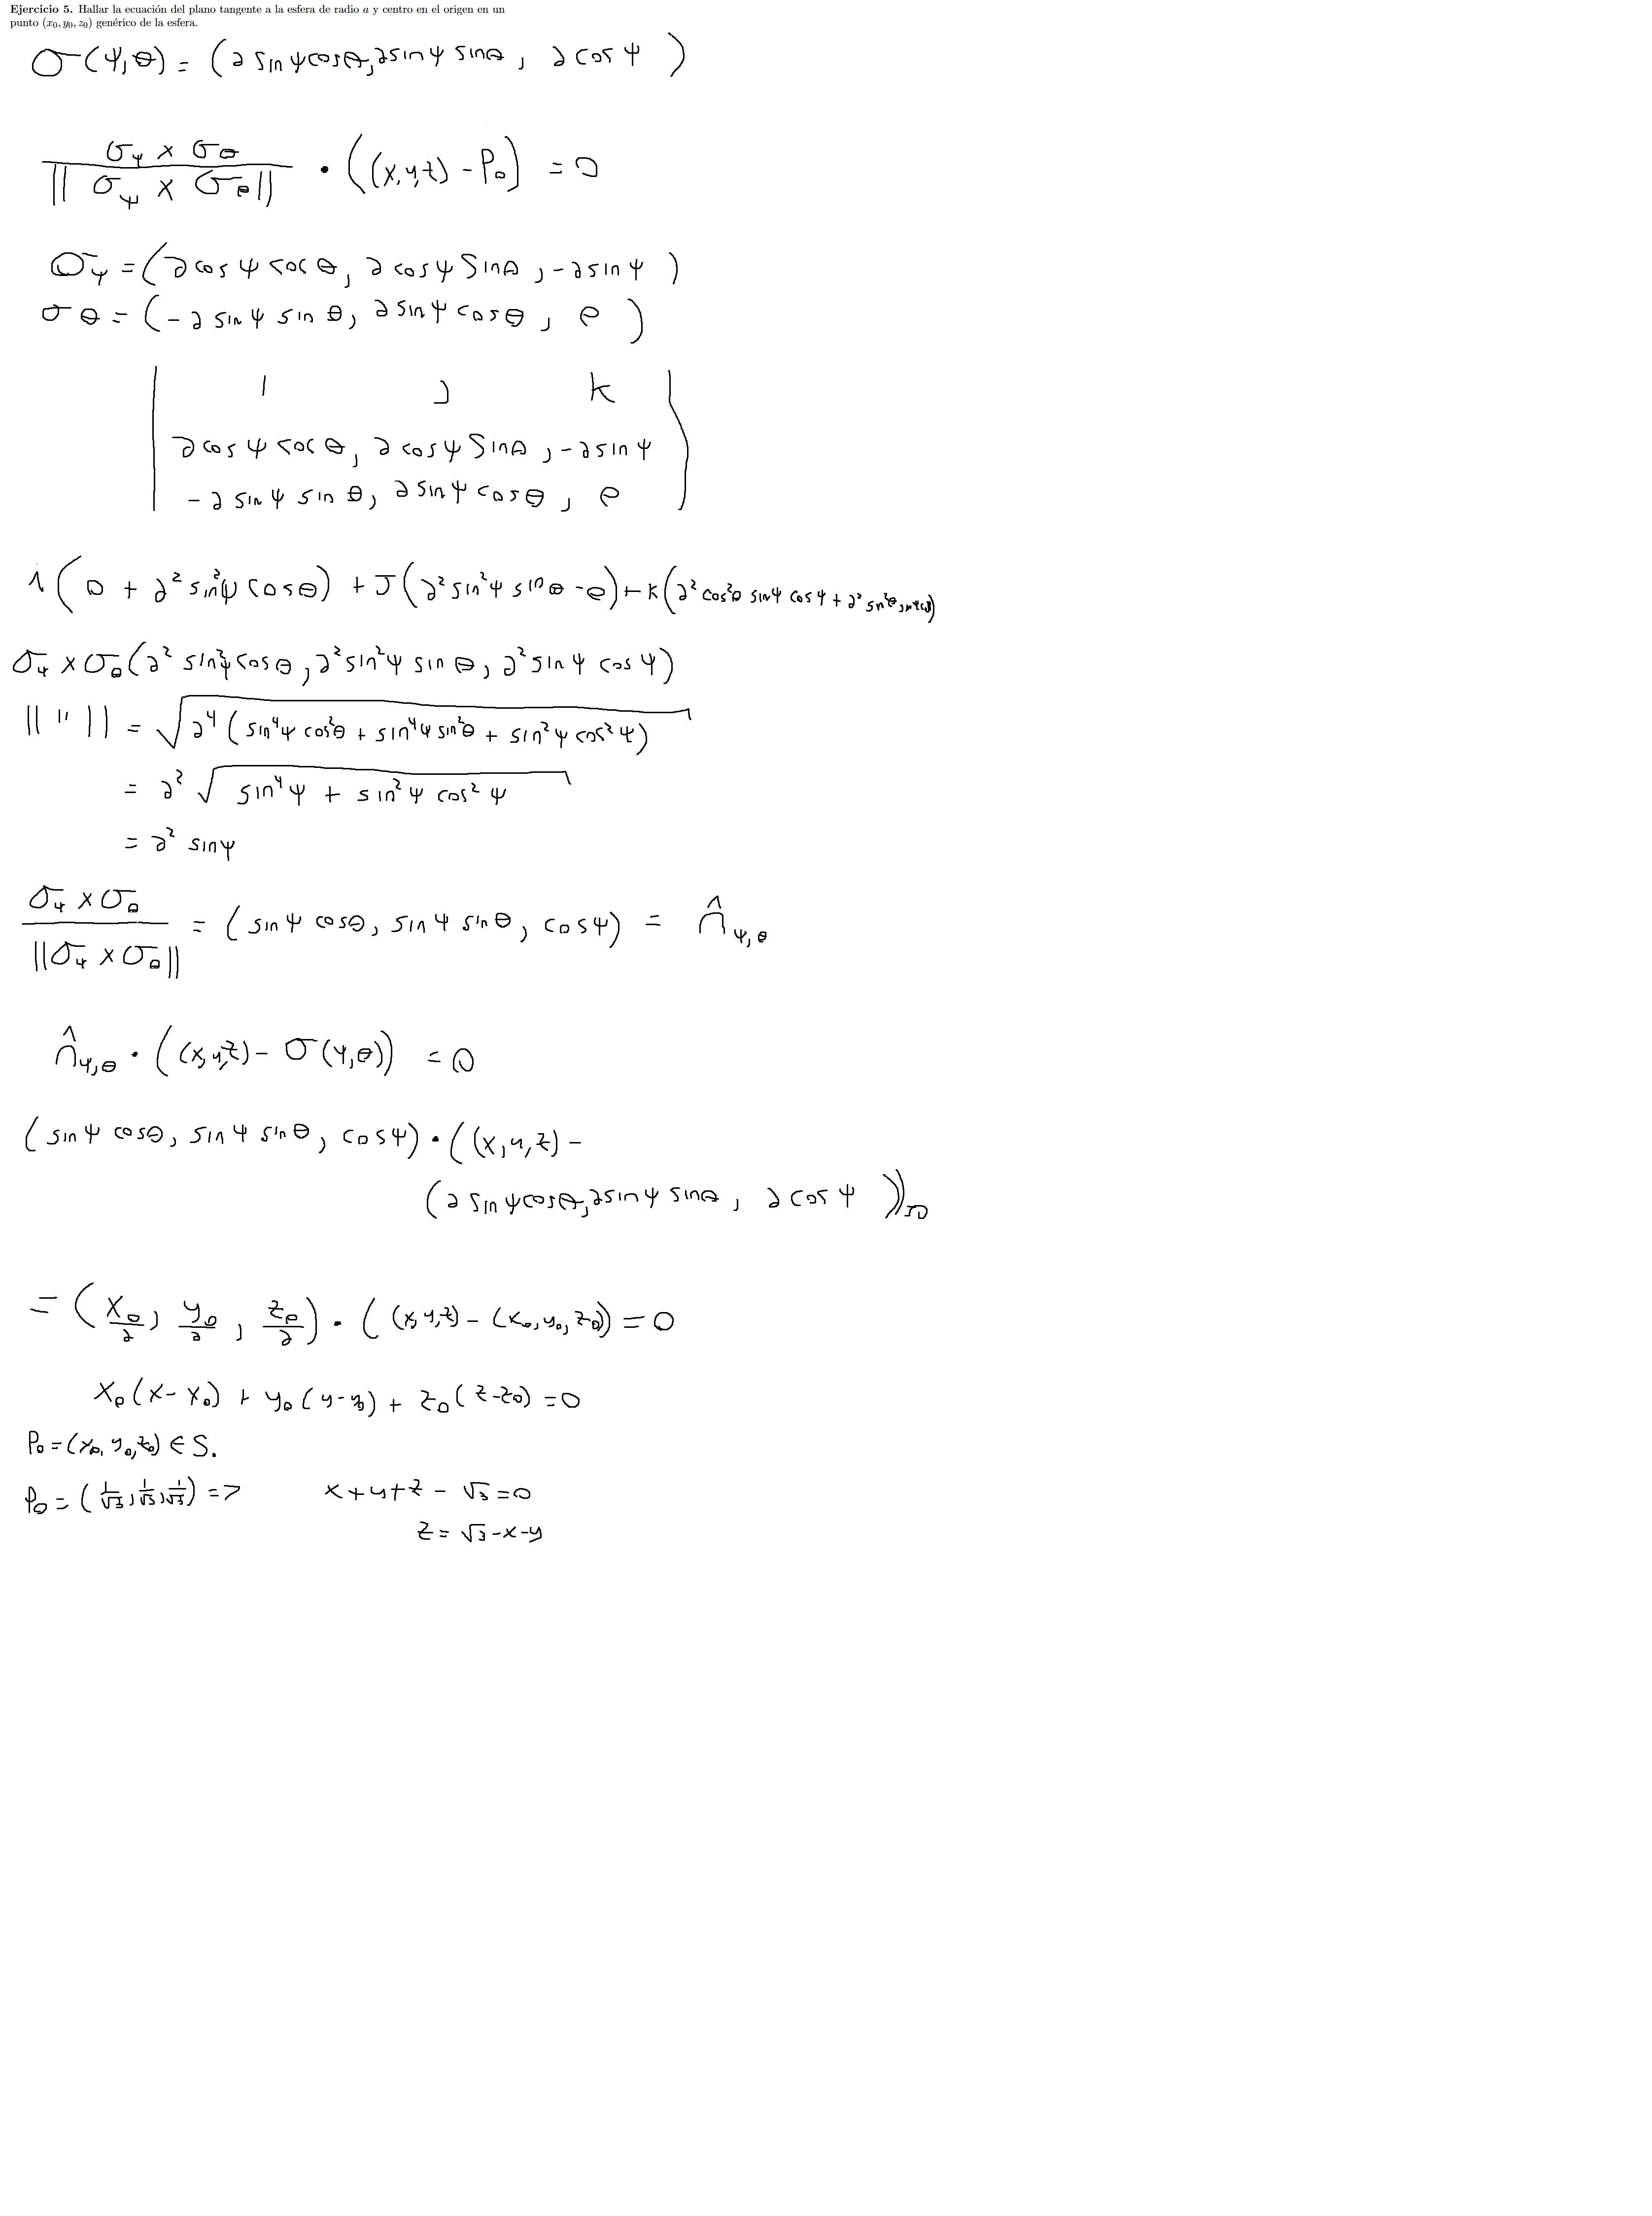 Ejercicio 5. Hallar la ecuación del plano tangente a la esfera de radio a y centro en el origen en un
punto (x₀, y₀, z₀) genérico de la esfera.
σ(ψ,θ) = (a sin ψ cos θ, a sin ψ sin θ, a cos ψ)
σψ × σθ / ||σψ × σθ|| · ((x,y,z) - P₀) = 0
σψ = (a cos ψ cos θ, a cos ψ sin θ, -a sin ψ)
σθ = (-a sin ψ sin θ, a sin ψ cos θ, 0)
| i j k |
a cos ψ cos θ, a cos ψ sin θ, -a sin ψ
-a sin ψ sin θ, a sin ψ cos θ, 0
i(0 + a² sin²ψ cos θ) + J(a² sin²ψ sin θ - 0) + k(a² cos²θ sin ψ cos ψ + a² sin²θ sin ψ cos ψ)
σψ × σθ (a² sin²ψ cos θ, a² sin²ψ sin θ, a² sin ψ cos ψ)
|| " || = √(a⁴(sin⁴ψ cos²θ + sin⁴ψ sin²θ + sin²ψ cos²ψ))
= a² √(sin⁴ψ + sin²ψ cos²ψ)
= a² sin ψ
σψ × σθ / ||σψ × σθ|| = (sin ψ cos θ, sin ψ sin θ, cos ψ) = n̂ψ,θ
n̂ψ,θ · ((x,y,z) - σ(ψ,θ)) = 0
(sin ψ cos θ, sin ψ sin θ, cos ψ) · ((x,y,z) -
(a sin ψ cos θ, a sin ψ sin θ, a cos ψ)) = 0
= (x₀/a, y₀/a, z₀/a) · ((x,y,z) - (x₀,y₀,z₀)) = 0
x₀(x - x₀) + y₀(y - y₀) + z₀(z - z₀) = 0
P₀ = (x₀, y₀, z₀) ∈ S.
P₀ = (1/√3, 1/√3, 1/√3) => x + y + z - √3 = 0
z = √3 - x - y